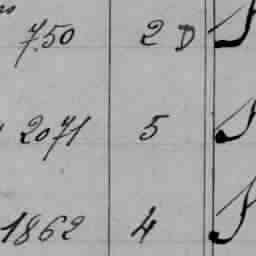 7.50 2 D
2071 5
1862 4